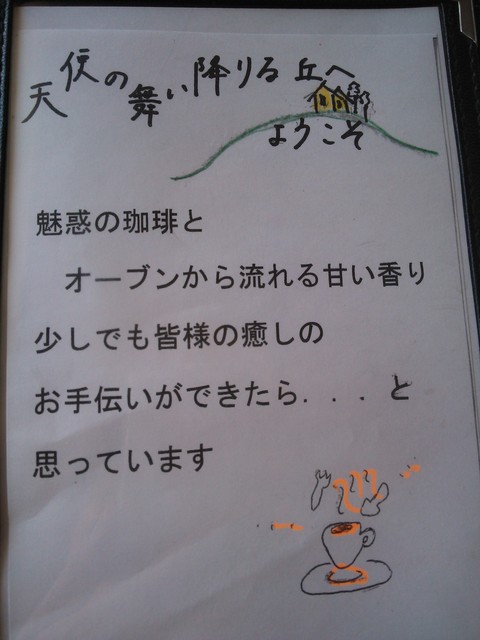 天使の舞い降りる丘へ
ようこそ
魅惑の珈琲と
オーブンから流れる甘い香り
少しでも皆様の癒しの
お手伝いができたら．．．と
思っています